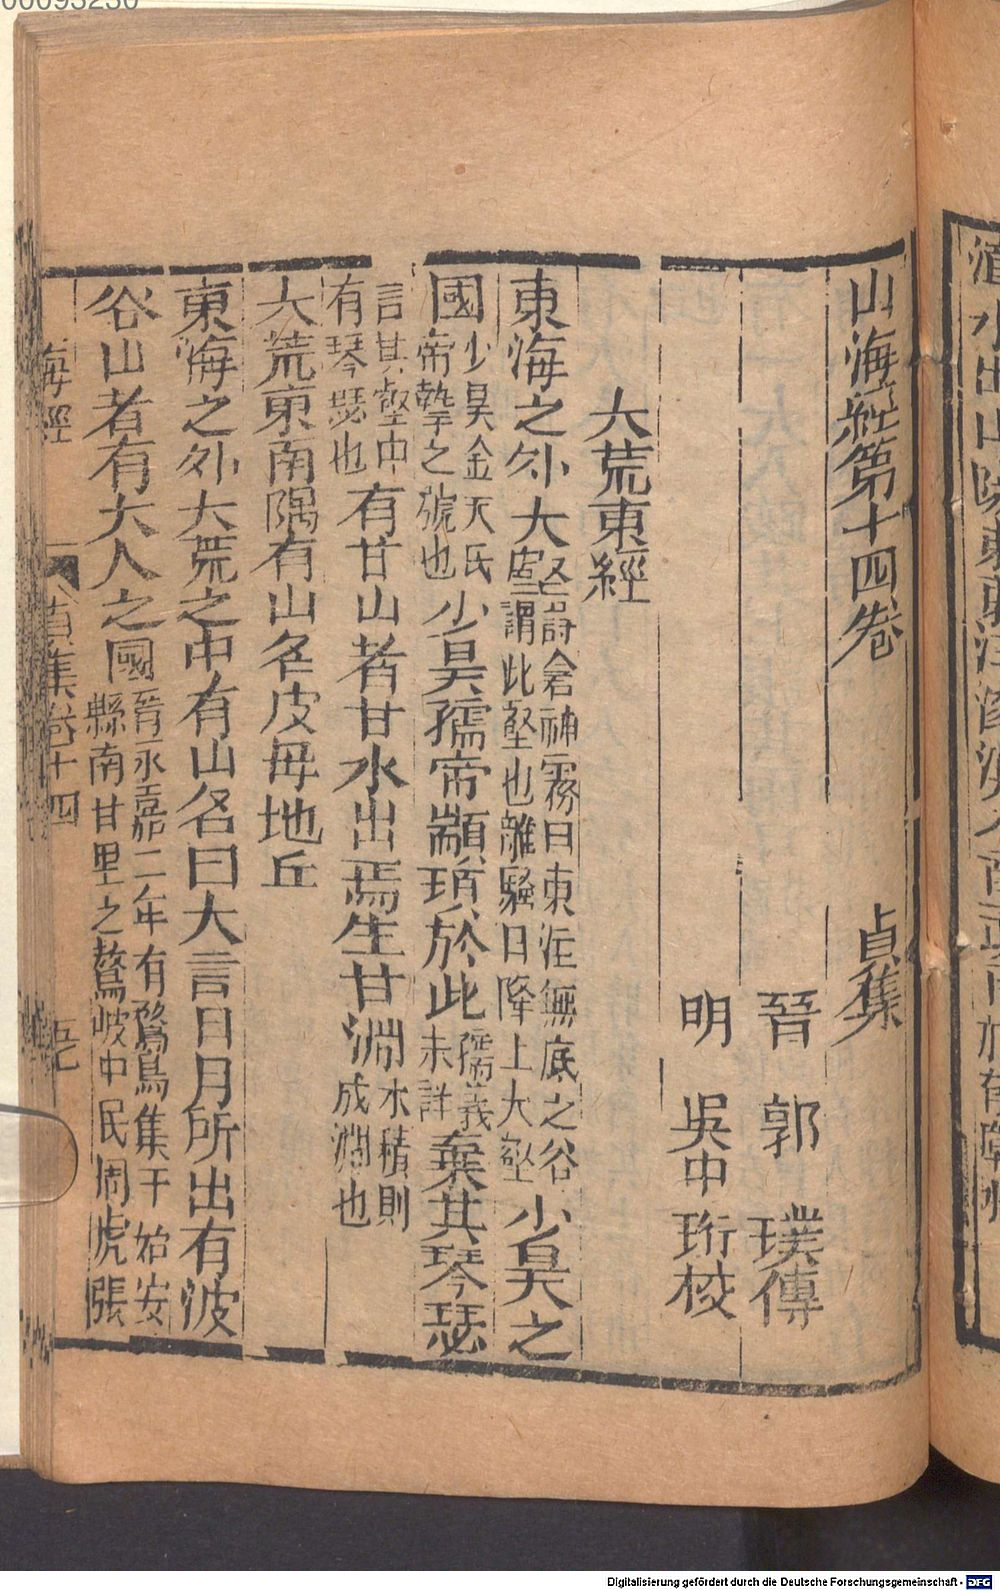 00093236
山海經第十四卷 貞集
晉 郭 璞傳
明 吳中珩校
大荒東經
東海之外大壑詩含神霧曰東注無底之谷謂此壑也離騷曰降上大壑少昊之
國少昊金天氏帝摯之號也少昊孺帝顓頊於此孺義未詳棄其琴瑟
言其壑中有琴瑟也有甘山者甘水出焉生甘淵水積則成淵也
大荒東南隅有山名皮母地丘
東海之外大荒之中有山名曰大言日月所出有波
谷山者有大人之國晉永嘉二年有鶖鳥集于始安縣南甘里之鶩岐中民周虎張
海經 貞集卷十四
Digitalisierung gefördert durch die Deutsche Forschungsgemeinschaft - DFG